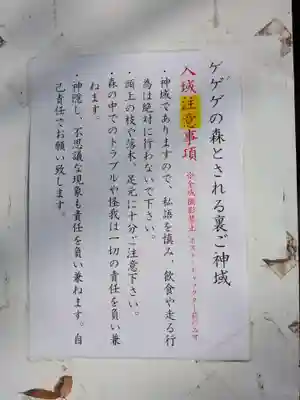 ゲゲゲの森とされる裏ご神域
入域注意事項
※全域撮影禁止
・神域でありますので、私語を慎み、飲食や走る行
為は絶対に行わないで下さい。
・頭上の枝や落木、足元に十分ご注意下さい。
・森の中でのトラブルや怪我は一切の責任を負い兼
ねます。
・神隠し、不思議な現象も責任を負い兼ねます。自
己責任でお願い致します。